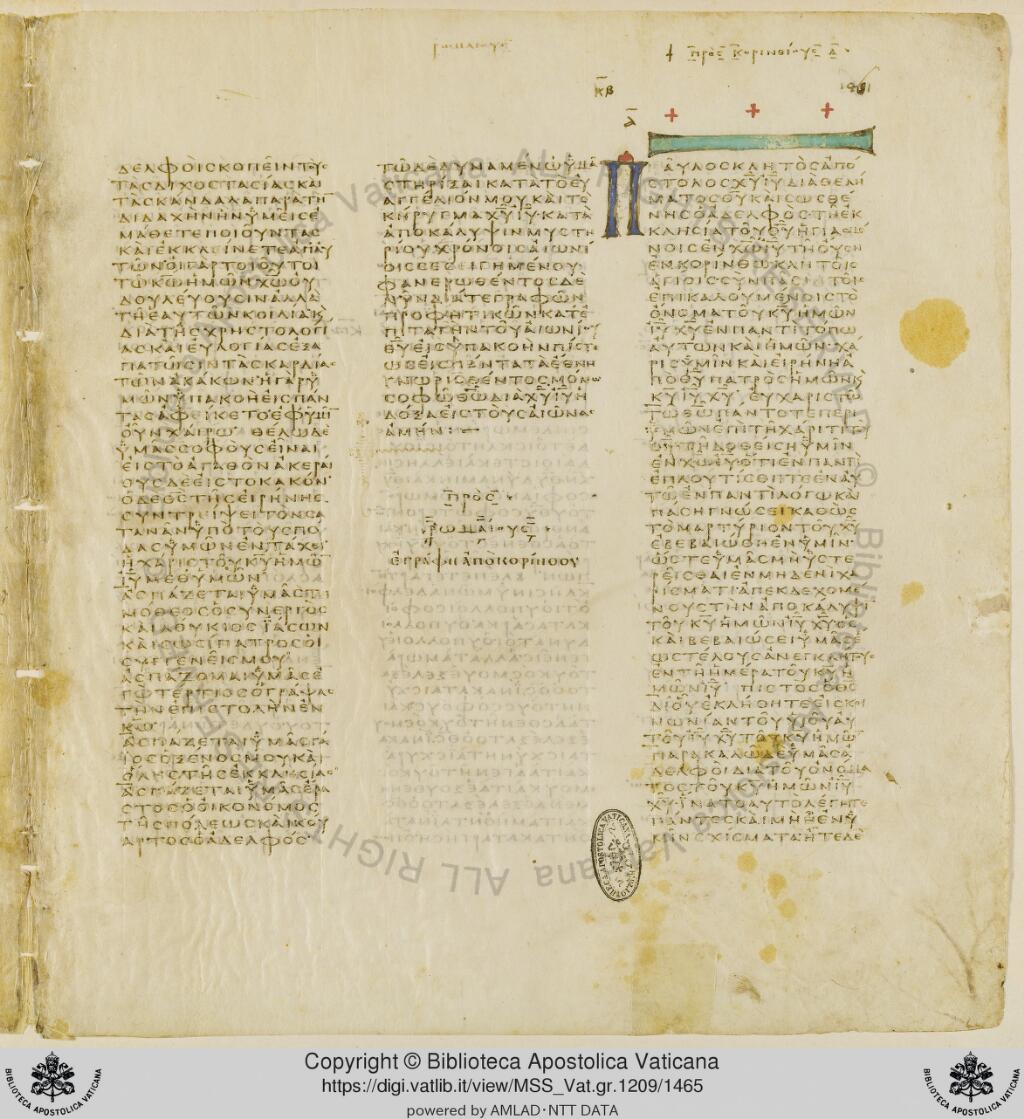 ρωμαιους
† προς Κορινθιους α
ΚΒ
Α
+ + +
ΔΕΛΦΟΙϹΚΟΠΕΙΝΤΟΥ
ΤΑϹΔΙΧΟϹΤΑϹΙΑϹΚΑΙ
ΤΑϹΚΑΝΔΑΛΑΠΑΡΑΤΗ
ΔΙΔΑΧΗΝΗΝΥΜΕΙϹΕ
ΜΑΘΕΤΕΠΟΙΟΥΝΤΑϹ
ΚΑΙΕΚΚΛΕΙΝΕΤΕΑΠΑΥ
ΤΩΝΟΙΓΑΡΤΟΙΟΥΤΟΙ
ΤΩΚΩΗΜΩΝΧΩΟΥ
ΔΟΥΛΕΥΟΥϹΙΝΑΛΛΑ
ΤΗΕΑΥΤΩΝΚΟΙΛΙΑΚ
ΔΙΑΤΗϹΧΡΗϹΤΟΛΟΓΙ
ΑϹΚΑΙΕΥΛΟΓΙΑϹΕΞΑ
ΠΑΤΩϹΙΝΤΑϹΚΑΡΔΙΑϹ
ΤΩΝΑΚΑΚΩΝΗΓΑΡΥ
ΜΩΝΥΠΑΚΟΗΕΙϹΠΑΝ
ΤΑϹΑΦΕΙΚΕΤΟΕΦΥΜΙ
ΟΥΝΧΑΙΡΩ ΘΕΛΩΔΕ
ΥΜΑϹϹΟΦΟΥϹΕΙΝΑΙ
ΕΙϹΤΟΑΓΑΘΟΝΑΚΕΡΑΙ
ΟΥϹΔΕΕΙϹΤΟΚΑΚΟΝ
ΟΔΕΘϹΤΗϹΕΙΡΗΝΗϹ
ϹΥΝΤΡΙΨΕΙΤΟΝϹΑ
ΤΑΝΑΝΥΠΟΤΟΥϹΠΟ
ΔΑϹΥΜΩΝΕΝΤΑΧΕΙ
ΗΧΑΡΙϹΤΟΥΚΥΗΜΩ
ΙΥΜΕΘΥΜΩΝ
ΑϹΠΑΖΕΤΑΙΥΜΑϹΤΙ
ΜΟΘΕΟϹΟϹΥΝΕΡΓΟϹ
ΚΑΙΛΟΥΚΙΟϹΙΑϹΩΝ
ΚΑΙϹΩϹΙΠΑΤΡΟϹΟΙ
ϹΥΓΓΕΝΕΙϹΜΟΥ
ΑϹΠΑΖΟΜΑΙΥΜΑϹΕ
ΓΩΤΕΡΤΙΟϹΟΓΡΑΨΑϹ
ΤΗΝΕΠΙϹΤΟΛΗΝΕΝ
ΚΩ
ΑϹΠΑΖΕΤΑΙΥΜΑϹΓΑ
ΙΟϹΟΞΕΝΟϹΜΟΥΚΑΙ
ΟΛΗϹΤΗϹΕΚΚΛΗϹΙΑϹ
ΑϹΠΑΖΕΤΑΙΥΜΑϹΕΡΑ
ϹΤΟϹΟΟΙΚΟΝΟΜΟϹ
ΤΗϹΠΟΛΕΩϹΚΑΙΚΟΥ
ΑΡΤΟϹΟΑΔΕΛΦΟϹ
ΤΩΔΕΔΥΝΑΜΕΝΩΥΜΑ
ϹΤΗΡΙΞΑΙΚΑΤΑΤΟΕΥ
ΑΓΓΕΛΙΟΝΜΟΥΚΑΙΤΟ
ΚΗΡΥΓΜΑΧΥΙΥΚΑΤΑ
ΑΠΟΚΑΛΥΨΙΝΜΥϹΤΗ
ΡΙΟΥΧΡΟΝΟΙϹΑΙΩΝΙ
ΟΙϹϹΕϹΙΓΗΜΕΝΟΥ
ΦΑΝΕΡΩΘΕΝΤΟϹΔΕ
ΝΥΝΔΙΑΤΕΓΡΑΦΩΝ
ΠΡΟΦΗΤΙΚΩΝΚΑΤΕ
ΠΙΤΑΓΗΝΤΟΥΑΙΩΝΙΟΥ
ΘΥΕΙϹΥΠΑΚΟΗΝΠΙϹΤΕ
ΩϹΕΙϹΠΑΝΤΑΤΑΕΘΝΗ
ΓΝΩΡΙϹΘΕΝΤΟϹΜΟΝΩ
ϹΟΦΩΘΩΔΙΑΧΥΙΥΗ
ΔΟΞΑΕΙϹΤΟΥϹΑΙΩΝΑϹ
ΑΜΗΝ:
ΠΡΟϹ
ΡΩΜΑΙΟΥϹ
ΕΓΡΑΦΗΑΠΟΚΟΡΙΝΘΟΥ
ΠΑΥΛΟϹΚΛΗΤΟϹΑΠΟ
ϹΤΟΛΟϹΧΥΙΥΔΙΑΘΕΛΗ
ΜΑΤΟϹΘΥΚΑΙϹΩϹΘΕ
ΝΗϹΟΑΔΕΛΦΟϹΤΗΕΚ
ΚΛΗϹΙΑΤΟΥΘΥΗΓΙΑϹΜΕ
ΝΟΙϹΕΝΧΩΙΥΤΗΟΥϹΗ
ΕΝΚΟΡΙΝΘΩΚΛΗΤΟΙϹ
ΑΓΙΟΙϹϹΥΝΠΑϹΙΤΟΙϹ
ΕΠΙΚΑΛΟΥΜΕΝΟΙϹΤΟ
ΟΝΟΜΑΤΟΥΚΥΗΜΩΝ
ΙΥΧΥΕΝΠΑΝΤΙΤΟΠΩ
ΑΥΤΩΝΚΑΙΗΜΩΝΧΑ
ΡΙϹΥΜΙΝΚΑΙΕΙΡΗΝΗΑ
ΠΟΘΥΠΑΤΡΟϹΗΜΩΝΚ
ΚΥΙΥΧΥ ΕΥΧΑΡΙϹΤΩ
ΤΩΘΩΠΑΝΤΟΤΕΠΕΡΙ
ΥΜΩΝΕΠΙΤΗΧΑΡΙΤΙΤΟΥ
ΘΥΤΗΔΟΘΕΙϹΗΥΜΙΝ
ΕΝΧΩΙΥΟΤΙΕΝΠΑΝΤΙ
ΕΠΛΟΥΤΙϹΘΗΤΕΕΝΑΥ
ΤΩΕΝΠΑΝΤΙΛΟΓΩΚΑΙ
ΠΑϹΗΓΝΩϹΕΙΚΑΘΩϹ
ΤΟΜΑΡΤΥΡΙΟΝΤΟΥΧΥ
ΕΒΕΒΑΙΩΘΗΕΝΥΜΙΝ
ΩϹΤΕΥΜΑϹΜΗΥϹΤΕ
ΡΕΙϹΘΑΙΕΝΜΗΔΕΝΙΧΑ
ΡΙϹΜΑΤΙΑΠΕΚΔΕΧΟΜΕ
ΝΟΥϹΤΗΝΑΠΟΚΑΛΥΨΙ
ΤΟΥΚΥΗΜΩΝΙΥΧΥΟϹ
ΚΑΙΒΕΒΑΙΩϹΕΙΥΜΑϹΕ
ΩϹΤΕΛΟΥϹΑΝΕΓΚΛΗΤΟΥϹ
ΕΝΤΗΗΜΕΡΑΤΟΥΚΥΗ
ΜΩΝΙΥ ΠΙϹΤΟϹΟΘϹ
ΔΙΟΥΕΚΛΗΘΗΤΕΕΙϹΚΟΙ
ΝΩΝΙΑΝΤΟΥΥΙΟΥΑΥ
ΤΟΥΙΥΧΥΤΟΥΚΥΗΜΩ
ΠΑΡΑΚΑΛΩΔΕΥΜΑϹΑ
ΔΕΛΦΟΙΔΙΑΤΟΥΟΝΟΜΑ
ΤΟϹΤΟΥΚΥΗΜΩΝΙΥ
ΧΥΙΝΑΤΟΑΥΤΟΛΕΓΗΤΕ
ΠΑΝΤΕϹΚΑΙΜΗΗΕΝΥ
ΜΙΝϹΧΙϹΜΑΤΑΗΤΕΔΕ
Copyright © Biblioteca Apostolica Vaticana
https://digi.vatlib.it/view/MSS_Vat.gr.1209/1465
powered by AMLAD·NTT DATA
BIBLIOTECA APOSTOLICA VATICANA
BIBLIOTECA APOSTOLICA VATICANA